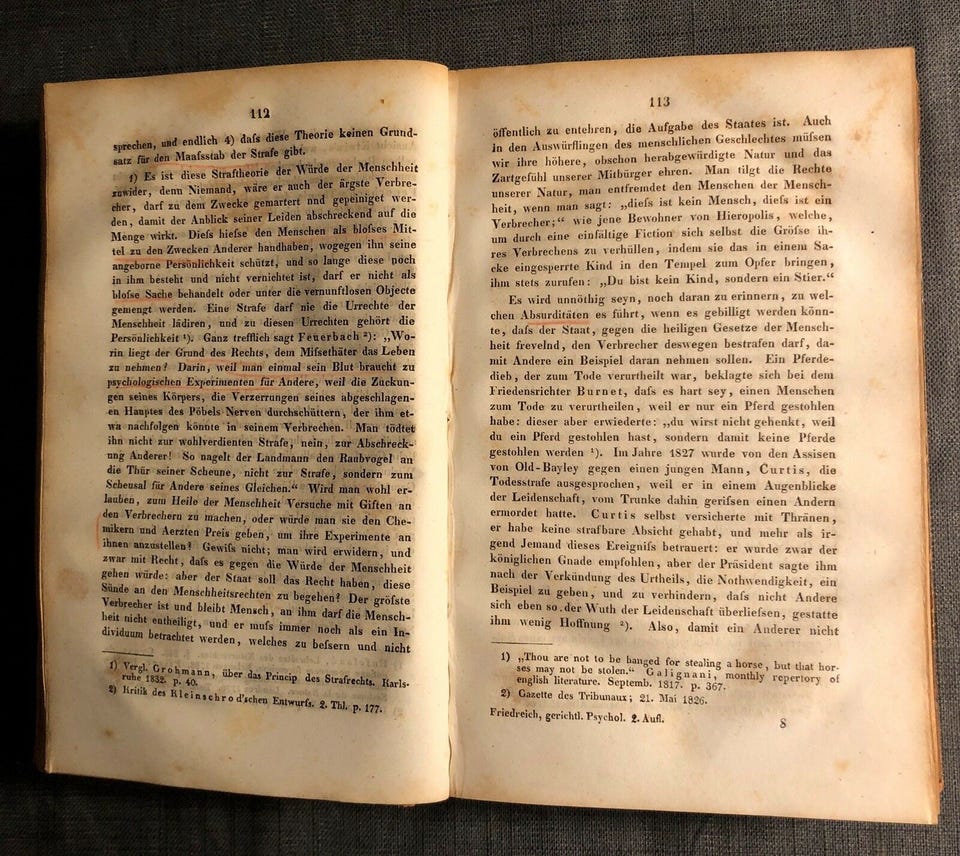 112
sprechen, und endlich 4) daſs diese Theorie keinen Grund-
satz für den Maaſsstab der Strafe gibt.
1) Es ist diese Straftheorie der Würde der Menschheit
zuwider, denn Niemand, wäre er auch der ärgste Verbre-
cher, darf zu dem Zwecke gemartert und gepeiniget wer-
den, damit der Anblick seiner Leiden abschreckend auf die
Menge wirkt. Dieſs hieſse den Menschen als bloſses Mit-
tel zu den Zwecken Anderer handhaben, wogegen ihn seine
angeborne Persönlichkeit schützt, und so lange diese noch
in ihm besteht und nicht vernichtet ist, darf er nicht als
bloſse Sache behandelt oder unter die vernunftlosen Objecte
gemengt werden. Eine Strafe darf nie die Urrechte der
Menschheit lädiren, und zu diesen Urrechten gehört die
Persönlichkeit ¹). Ganz trefflich sagt Feuerbach ²): „Wo-
rin liegt der Grund des Rechts, dem Miſsethäter das Leben
zu nehmen? Darin, weil man einmal sein Blut braucht zu
psychologischen Experimenten für Andere, weil die Zuckun-
gen seines Körpers, die Verzerrungen seines abgeschlagen-
en Hauptes des Pöbels Nerven durchschüttern, der ihm et-
wa nachfolgen könnte in seinem Verbrechen. Man tödtet
ihn nicht zur wohlverdienten Strafe, nein, zur Abschreck-
ung Anderer! So nagelt der Landmann den Raubvogel an
die Thür seiner Scheune, nicht zur Strafe, sondern zum
Scheusal für Andere seines Gleichen.“ Wird man wohl er-
lauben, zum Heile der Menschheit Versuche mit Giften an
den Verbrechern zu machen, oder würde man sie den Che-
mikern und Aerzten Preis geben, um ihre Experimente an
ihnen anzustellen? Gewiſs nicht; man wird erwidern, und
zwar mit Recht, daſs es gegen die Würde der Menschheit
gehen würde: aber der Staat soll das Recht haben, diese
Sünde an den Menschheitsrechten zu begehen? Der gröſste
Verbrecher ist und bleibt Mensch, an ihm darf die Mensch-
heit nicht entheiligt, und er muſs immer noch als ein In-
dividuum betrachtet werden, welches zu beſsern und nicht
1) Vergl. Grohmann, über das Princip des Strafrechts. Karls-
ruhe 1832. p. 40.
2) Kritik des Kleinschrod'schen Entwurfs. 2. Thl. p. 177.
113
öffentlich zu entehren, die Aufgabe des Staates ist. Auch
in den Auswürflingen des menschlichen Geschlechtes müſsen
wir ihre höhere, obschon herabgewürdigte Natur und das
Zartgefühl unserer Mitbürger ehren. Man tilgt die Rechte
unserer Natur, man entfremdet den Menschen der Mensch-
heit, wenn man sagt: „dieſs ist kein Mensch, dieſs ist ein
Verbrecher;“ wie jene Bewohner von Hieropolis, welche,
um durch eine einfältige Fiction sich selbst die Gröſse ih-
res Verbrechens zu verhüllen, indem sie das in einem Sa-
cke eingesperrte Kind in den Tempel zum Opfer bringen,
ihm stets zurufen: „Du bist kein Kind, sondern ein Stier.“
Es wird unnöthig seyn, noch daran zu erinnern, zu wel-
chen Absurditäten es führt, wenn es gebilligt werden könn-
te, daſs der Staat, gegen die heiligen Gesetze der Mensch-
heit frevelnd, den Verbrecher deswegen bestrafen darf, da-
mit Andere ein Beispiel daran nehmen sollen. Ein Pferde-
dieb, der zum Tode verurtheilt war, beklagte sich bei dem
Friedensrichter Burnet, daſs es hart sey, einen Menschen
zum Tode zu verurtheilen, weil er nur ein Pferd gestohlen
habe: dieser aber erwiederte: „du wirst nicht gehenkt, weil
du ein Pferd gestohlen hast, sondern damit keine Pferde
gestohlen werden ¹). Im Jahre 1827 wurde von den Assisen
von Old-Bayley gegen einen jungen Mann, Curtis, die
Todesstrafe ausgesprochen, weil er in einem Augenblicke
der Leidenschaft, vom Trunke dahin geriſsen einen Andern
ermordet hatte. Curtis selbst versicherte mit Thränen,
er habe keine strafbare Absicht gehabt, und mehr als ir-
gend Jemand dieses Ereigniſs betrauert: er wurde zwar der
königlichen Gnade empfohlen, aber der Präsident sagte ihm
nach der Verkündung des Urtheils, die Nothwendigkeit, ein
Beispiel zu geben, und zu verhindern, daſs nicht Andere
sich eben so der Wuth der Leidenschaft überlieſsen, gestatte
ihm wenig Hoffnung ²). Also, damit ein Anderer nicht
1) „Thou are not to be hanged for stealing a horse, but that hor-
ses may not be stolen.“ Galignani, monthly repertory of
english literature. Septemb. 1817. p. 367.
2) Gazette des Tribunaux; 21. Mai 1826.
Friedreich, gerichtl. Psychol. 2. Aufl.
8